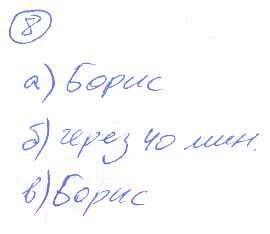 8
а) Борис
б) через 40 мин.
в) Борис